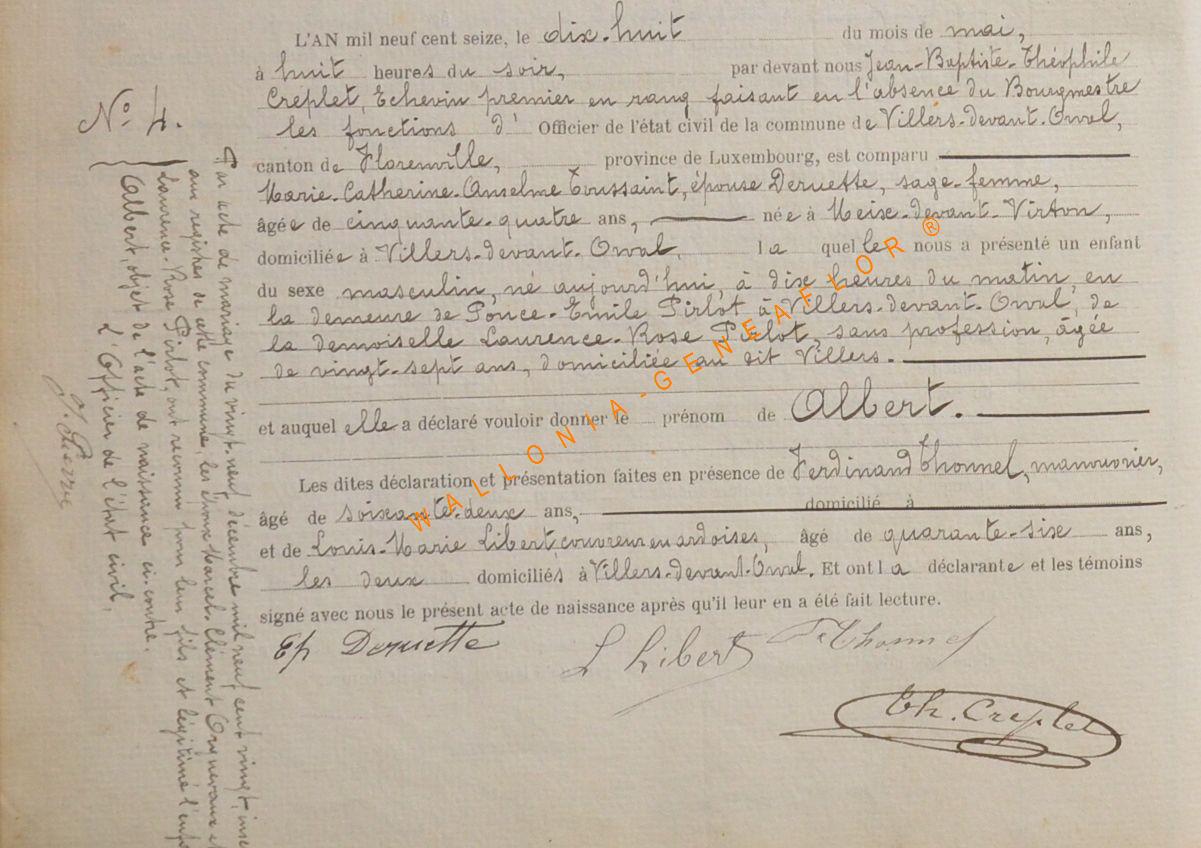 L'AN mil neuf cent seize, le dix-huit du mois de mai,
à huit heures du soir, par devant nous Jean-Baptiste-Théophile
Creplet, Echevin premier en rang faisant en l'absence du Bourgmestre
les fonctions d' Officier de l'état civil de la commune de Villers-devant-Orval,
canton de Florenville, province de Luxembourg, est comparu
Marie-Catherine-Anselme Toussaint, épouse Deruette, sage-femme,
âgée de cinquante-quatre ans, née à Meix-devant-Virton,
domiciliée à Villers-devant-Orval, la quelle nous a présenté un enfant
du sexe masculin, né aujourd'hui, à dix heures du matin, en
la demeure de Ponce-Emile Pirlot à Villers-devant-Orval, de
la demoiselle Laurence-Rose Pirlot, sans profession, âgée
de vingt-sept ans, domiciliée au dit Villers.
et auquel elle a déclaré vouloir donner le prénom de Albert.
Les dites déclaration et présentation faites en présence de Ferdinand Thonnel, manouvrier,
âgé de soixante-deux ans, domicilié à
et de Louis-Marie Libert, couvreur en ardoises, âgé de quarante-six ans,
les deux domiciliés à Villers-devant-Orval. Et ont la déclarante et les témoins
signé avec nous le présent acte de naissance après qu'il leur en a été fait lecture.
Ep Deruette L Libert F Thonnel
Th. Creplet
No 4.
Par acte de mariage du vingt-neuf décembre mil neuf cent vingt, insc
aux registres de cette commune, les époux Marcel-Clément et
Laurence-Rose Pirlot, ont reconnu pour leur fils et légitimé l'enfa
Albert, objet de l'acte de naissance ci-contre.
L'Officier de l'état civil,
J. Pierre
WALLONIA-GENEAFLOR ®